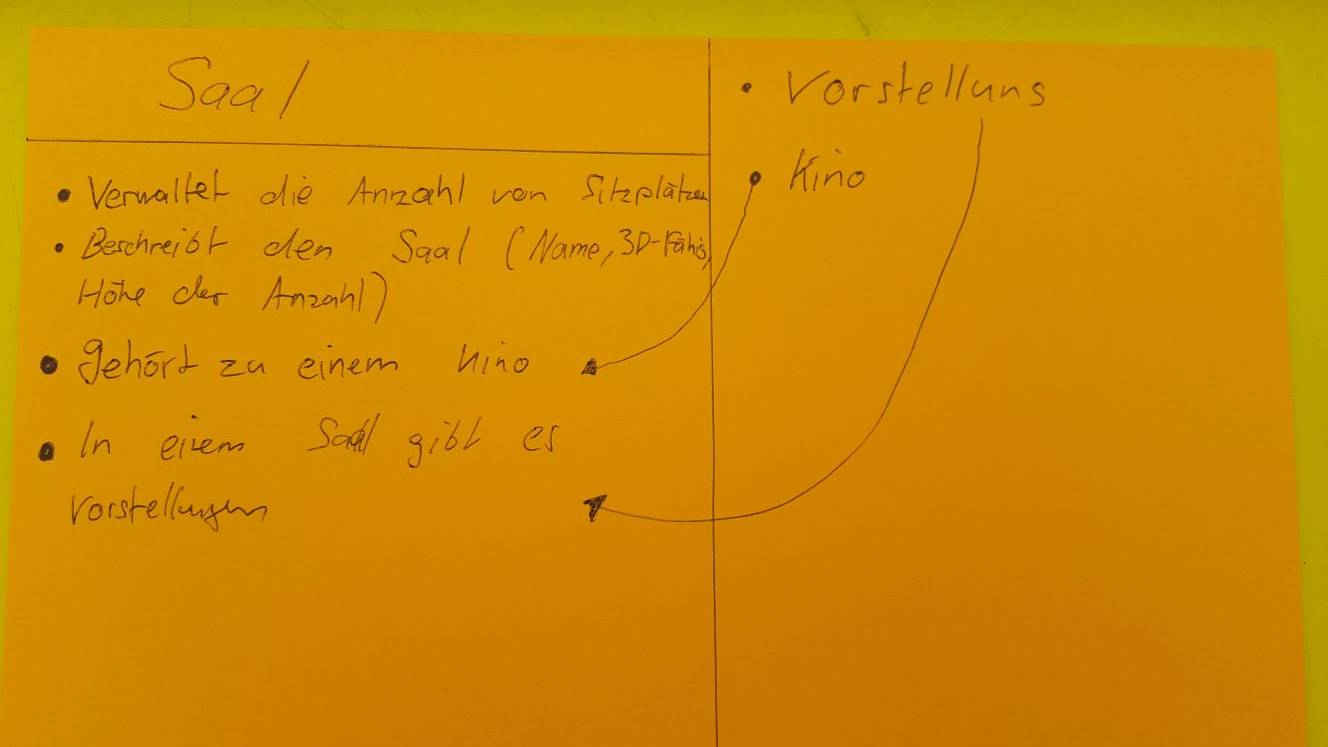 Saal
• Verwaltet die Anzahl von Sitzplätzen
• Beschreibt den Saal (Name, 3D-Fähig,
Höhe der Anzahl)
• gehört zu einem Kino
• In einem Saal gibt es
Vorstellungen
• Vorstellung
• Kino